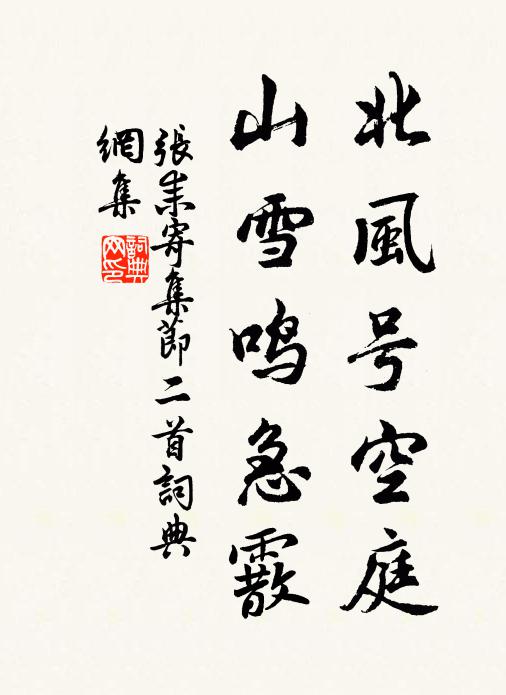 北風号空庭
山雪鸣急霰
張耒寄集莭二首詞典
網集
詞典
网印